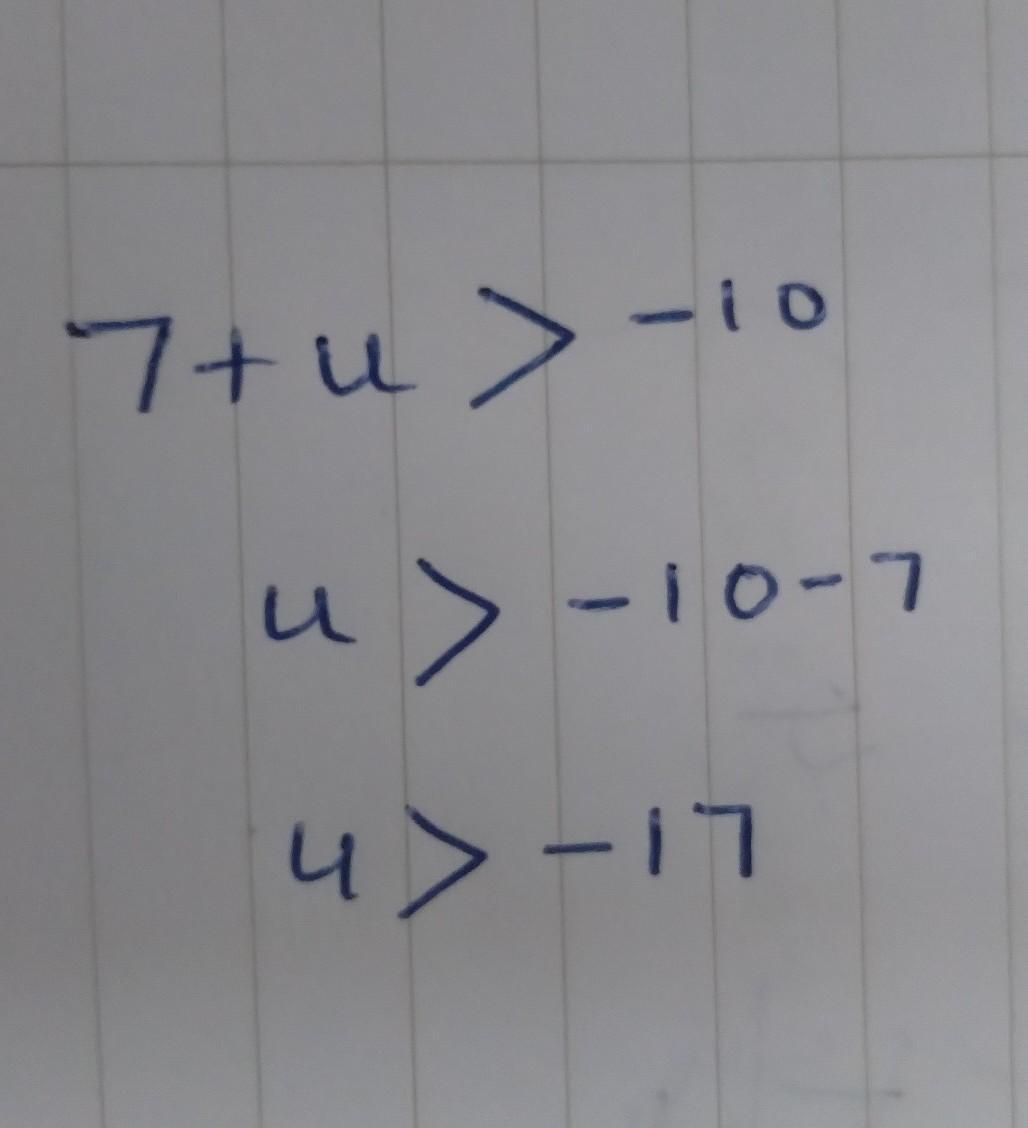 7+u > -10
u > -10-7
u > -17